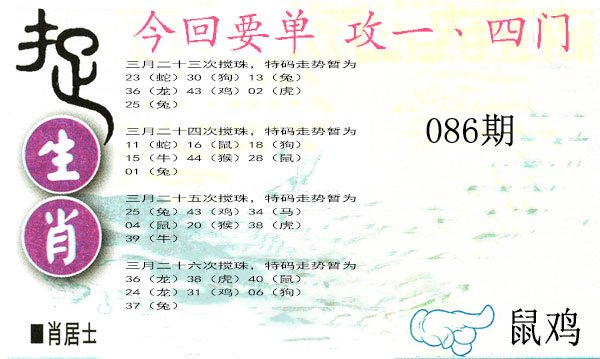 捉生肖
今回要单 攻一、四门
三月二十三次搅珠，特码走势暂为
23（蛇）30（狗）13（兔）
36（龙）43（鸡）02（虎）
25（兔）
三月二十四次搅珠，特码走势暂为
11（蛇）16（鼠）18（狗）
15（牛）44（猴）28（鼠）
01（兔）
三月二十五次搅珠，特码走势暂为
25（兔）43（鸡）34（马）
04（鼠）20（猴）38（虎）
39（牛）
三月二十六次搅珠，特码走势暂为
36（龙）38（虎）40（鼠）
24（龙）31（鸡）06（狗）
37（兔）
086期
■肖居士
鼠鸡